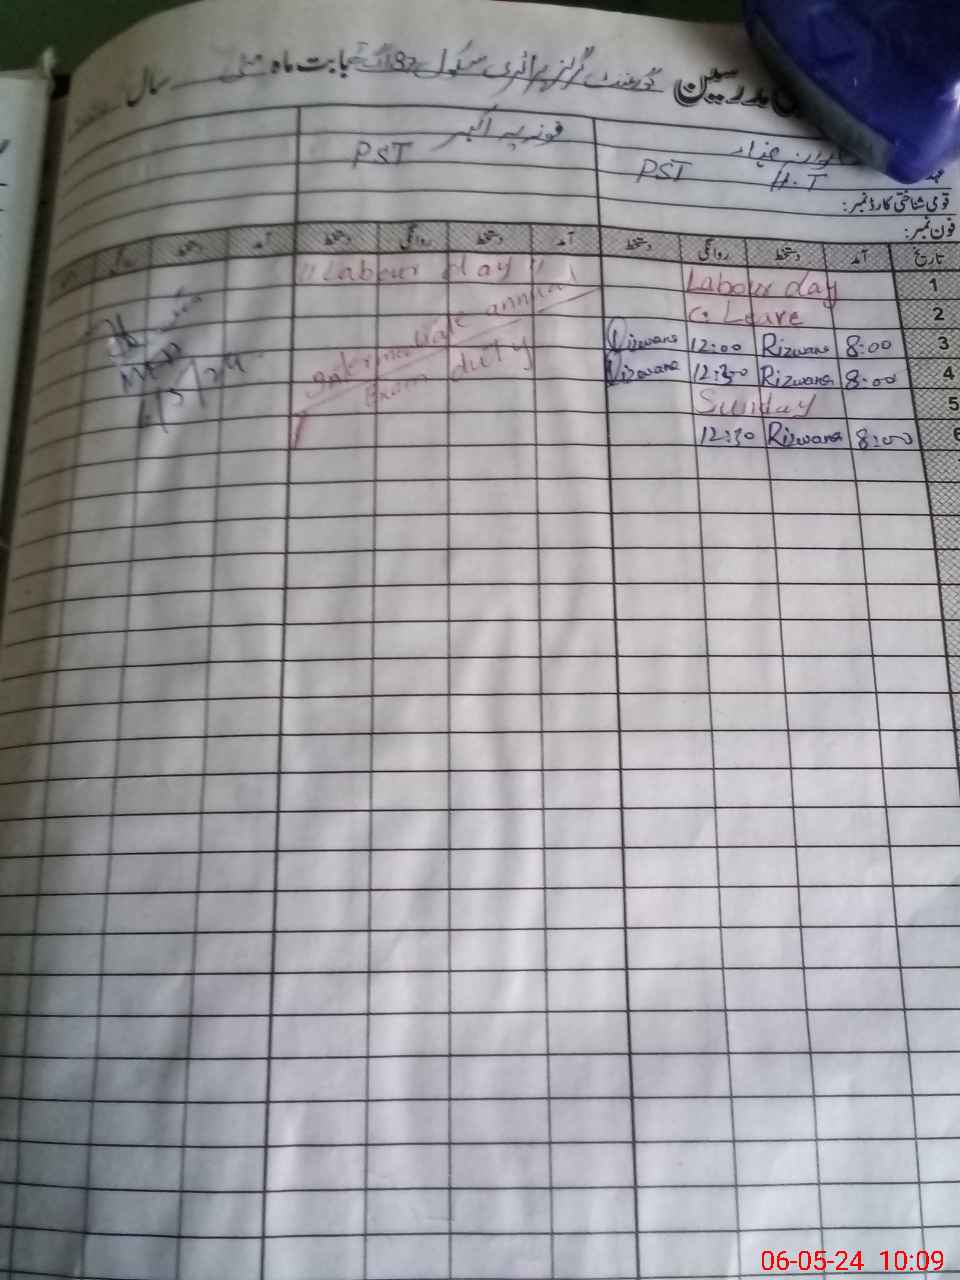 مدرسین گورنمنٹ گرلز پرائمری سکول بابت ماہ مئی سال
فوزیہ اکبر
PST
PST H.T
قومی شناختی کارڈ نمبر:
فون نمبر:
تاریخ آمد دستخط روانگی دستخط آمد دستخط روانگی دستخط آمد دستخط روانگی
1 Labour day "Labour day"
2 C. Leave
3 8:00 Rizwana 12:00 Rizwana
4 8:00 Rizwana 12:30 Rizwana
5 Sunday
6 8:00 Rizwana 12:30
Intermediate annual
Exam duty
06-05-24 10:09